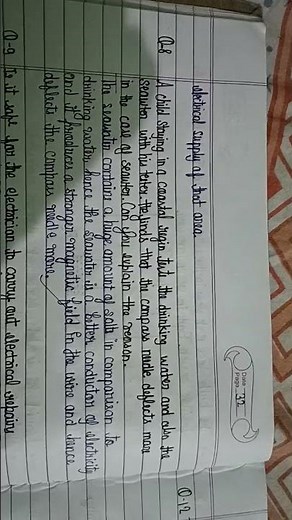 Date
Page 32
electrical supply of that area.
Q-8 A child staying in a coastal region test the drinking water and also the
seawater with his tester. He finds that the compass needle deflects more
in the case of seawater. Can you explain the reason.
The seawater contains a huge amount of salt in comparison to
drinking water, hence the seawater is a better conductor of electricity
and it produces a stronger magnetic field in the wire and hence
deflects the compass needle more.
Q-9 Is it safe for the electrician to carry out electrical repairs
Q-12